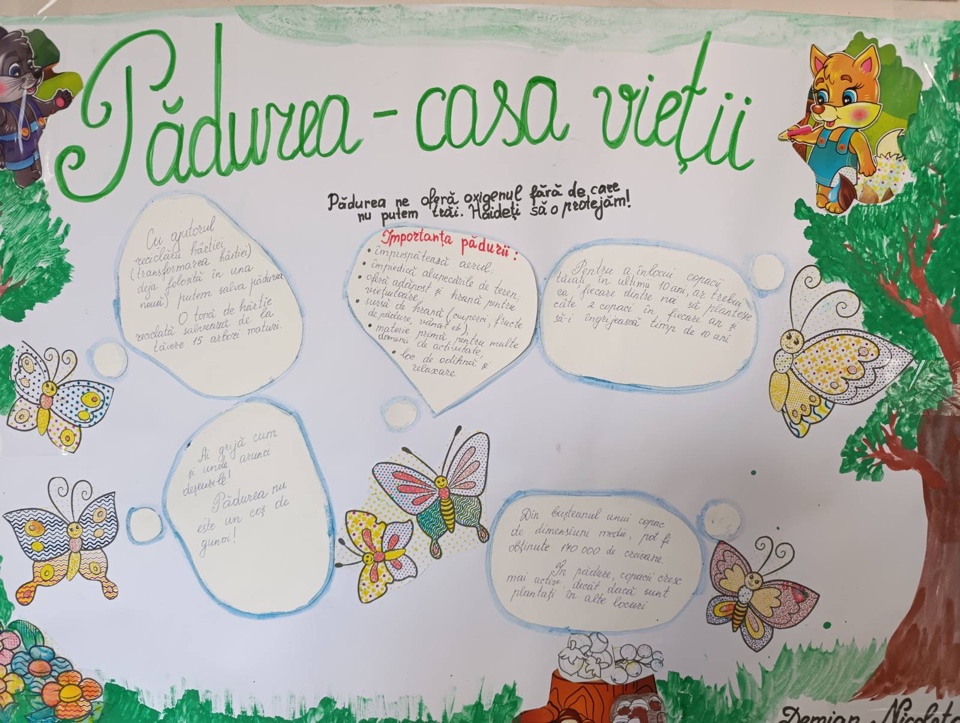 Pădurea - casa vieții
Pădurea ne oferă oxigenul fără de care
nu putem trăi. Haideți să o protejăm!
Cu ajutorul
reciclării hârtiei
(transformarea hârtiei)
deja folosită în una
nouă) putem salva pădurea
O tonă de hârtie
reciclată salvează de la
tăiere 15 arbori maturi.
Importanța pădurii:
• împrospătează aerul;
• împiedică alunecările de teren,
• oferă adăpost și hrană pentru
viețuitoare,
• sursă de hrană (ciuperci, fructe
de pădure, vânat etc),
• materie primă pentru multe
domenii de activitate,
• loc de odihnă și
relaxare.
Pentru a înlocui copacii
tăiați în ultimii 10 ani, ar trebui
ca fiecare dintre noi să planteze
câte 2 copaci în fiecare an și
să-i îngrijească timp de 10 ani
Ai grijă cum
și unde arunci
deșeurile!
Pădurea nu
este un coș de
gunoi!
Din bușteanul unui copac
de dimensiuni medii, pot fi
obținute 170 000 de creioane.
În pădure, copacii cresc
mai activ decât dacă sunt
plantați în alte locuri
Demian Nicoleta